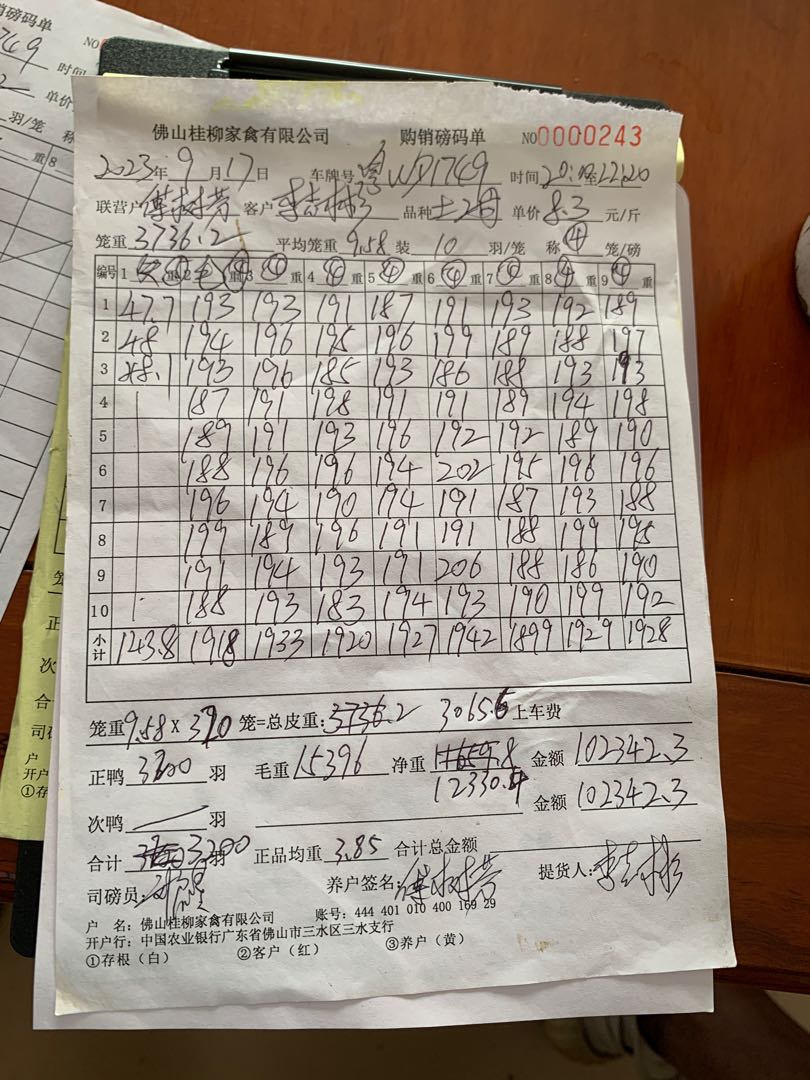 销磅码单
NO
749
时间
单价
羽/笼 称
重 8
佛山桂柳家禽有限公司 购销磅码单 NO0000243
2023年9月17日 车牌号 粤WD1749 时间 至22:20
联营户 客户 品种 土2母 单价8.3元/斤
笼重3736.2 平均笼重9.58 装10羽/笼 称④笼/磅
编号 1 重 2 ④ 重 3 ④ 重 4 ④ 重 5 ④ 重 6 ④ 重 7 ④ 重 8 ④ 重 9 ④ 重
1 47.7 193 193 191 187 191 193 192 189
2 48 194 196 195 196 199 189 188 197
3 48.1 193 196 185 193 186 188 193 193
4 187 191 198 191 191 189 194 198
5 189 191 193 196 192 192 189 190
6 188 196 196 194 202 195 196 196
7 196 194 190 194 191 187 193 188
8 199 189 196 191 191 188 199 195
9 191 194 193 191 206 188 186 190
10 188 193 183 194 193 190 199 192
小计 143.8 1918 1933 1920 1927 1942 1899 1929 1928
笼重9.58×390笼=总皮重:3736.2 3065.6上车费
正鸭 羽 毛重15396 净重 11659.8 金额102342.3
12330.4
次鸭 羽 金额102342.3
合计 3200羽 正品均重3.85 合计总金额
司磅员: 养户签名: 提货人:
户 名:佛山桂柳家禽有限公司 账号:444 401 010 400 169 29
开户行:中国农业银行广东省佛山市三水区三水支行
①存根(白) ②客户(红) ③养户(黄)